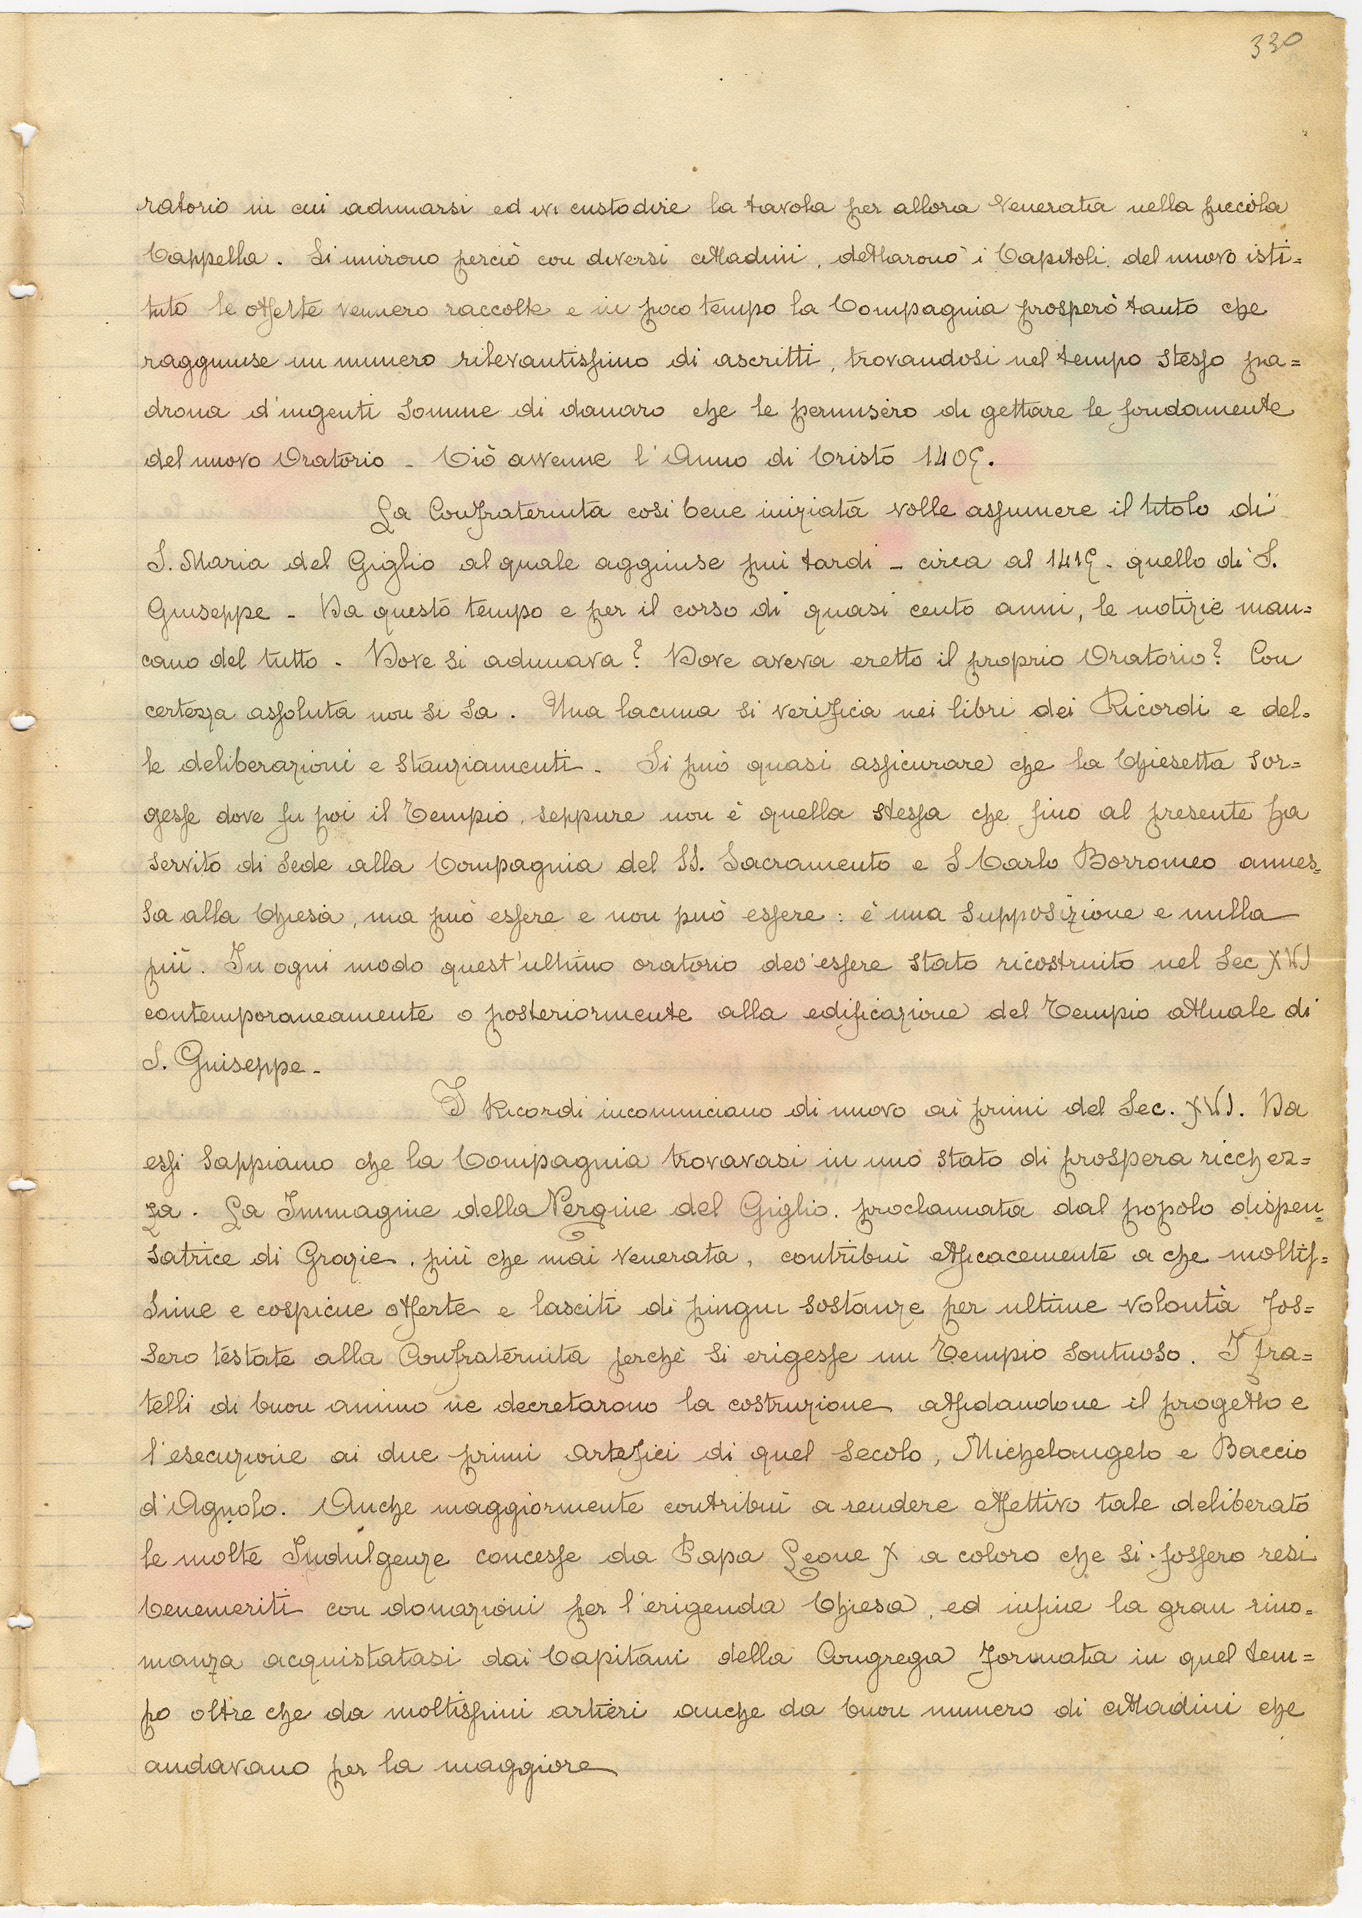 330
ratorio in cui adunarsi ed ivi custodire la tavola per allora venerata nella piccola
Cappella. Si unirono perciò con diversi cittadini, dettarono i Capitoli del nuovo isti=
tuto le offerte vennero raccolte e in poco tempo la Compagnia prosperò tanto che
raggiunse un numero rilevantissimo di ascritti, trovandosi nel tempo stesso pa=
drona d'ingenti somme di danaro che le permisero di gettare le fondamente
del nuovo Oratorio - Ciò avvenne l'Anno di Cristo 1405.
La Confraternita così bene iniziata volle assumere il titolo di
S. Maria del Giglio al quale aggiunse più tardi - circa al 1415 - quello di S.
Giuseppe - Da questo tempo e per il corso di quasi cento anni, le notizie man=
cano del tutto - Dove si adunava? Dove aveva eretto il proprio Oratorio? Con
certezza assoluta non si sa. Una lacuna si verifica nei libri dei Ricordi e del=
le deliberazioni e stanziamenti - Si può quasi assicurare che la Chiesetta sor=
gesse dove fu poi il Tempio, seppure non è quella stessa che fino al presente ha
servito di sede alla Compagnia del SS. Sacramento e S Carlo Borromeo annes=
sa alla Chiesa, ma può essere e non può essere: è una supposizione e nulla
più. In ogni modo quest'ultimo oratorio dev'essere stato ricostruito nel Sec XVI
contemporaneamente o posteriormente alla edificazione del Tempio attuale di
S. Giuseppe -
I Ricordi incominciano di nuovo ai primi del Sec. XVI. Da
essi sappiamo che la Compagnia trovavasi in uno stato di prospera ricchez=
za. La Immagine della Vergine del Giglio, proclamata dal popolo dispen=
satrice di Grazie, più che mai venerata, contribuì efficacemente a che moltis=
sime e cospicue offerte e lasciti di pingui sostanze per ultime volontà fos=
sero testate alla Confraternità perchè si erigesse un Tempio sontuoso. I fra=
telli di buon animo ne decretarono la costruzione affidandone il progetto e
l'esecuzione ai due primi artefici di quel secolo, Michelangelo e Baccio
d'Agnolo. Anche maggiormente contribuì a rendere effettivo tale deliberato
le molte Indulgenze concesse da Papa Leone X a coloro che si fossero resi
benemeriti con donazioni per l'erigenda Chiesa, ed infine la gran rino=
manza acquistatasi dai Capitani della Congrega formata in quel tem=
po oltre che da moltissimi artieri anche da buon numero di cittadini che
andavano per la maggiore